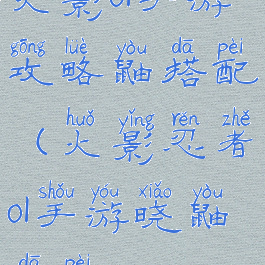 火影01手游
gōng lüè yòu dā pèi
攻略鼬搭配
huǒ yǐng rěn zhě
(火影忍者
shǒu yóu xiǎo yòu
01手游晓鼬
dā pèi